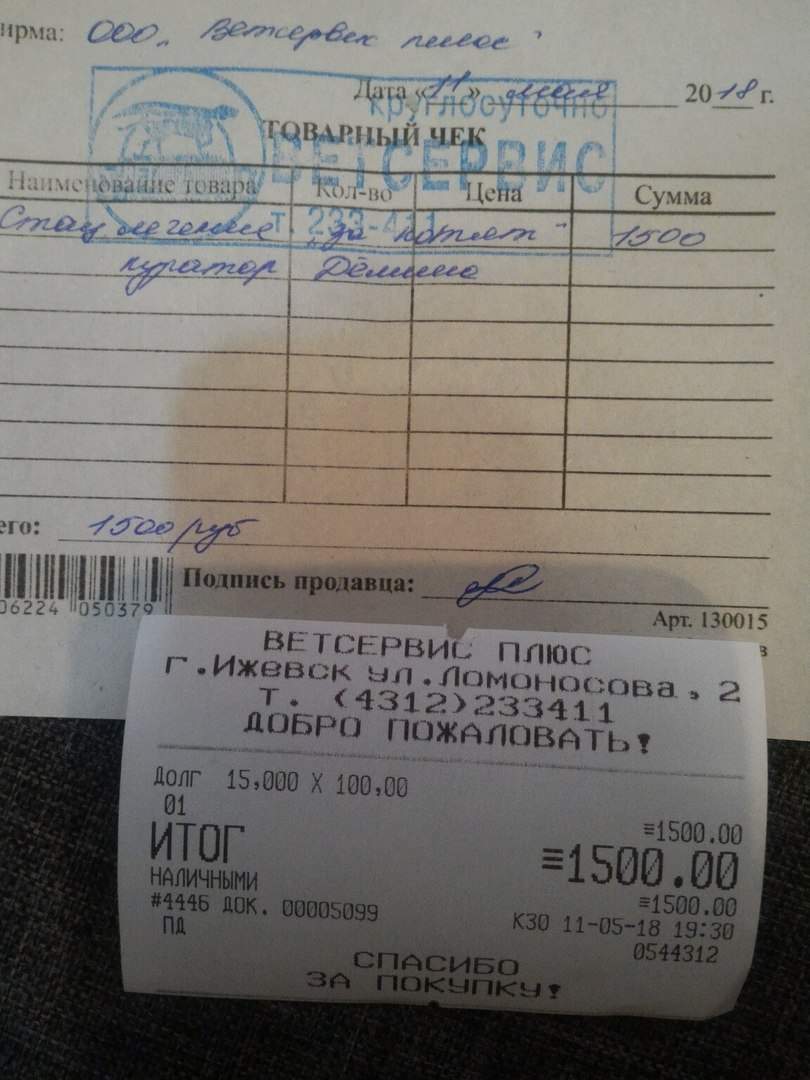 ирма: ООО „Ветсервис плюс"
Дата «11» мая 2018 г.
круглосуточно
ТОВАРНЫЙ ЧЕК
ВЕТСЕРВИС
т. 233-411
Наименование товара Кол-во Цена Сумма
Стац лечение „за котят" 1500
куратор Дёмина
его: 1500 руб
Подпись продавца:
06224 050379
Арт. 130015
ВЕТСЕРВИС ПЛЮС
г.Ижевск ул.Ломоносова, 2
Т. (4312)233411
ДОБРО ПОЖАЛОВАТЬ!
ДОЛГ 15,000 X 100,00
01
≡1500.00
ИТОГ ≡1500.00
НАЛИЧНЫМИ ≡1500.00
#4446 ДОК. 00005099 К30 11-05-18 19:30
ПД 0544312
СПАСИБО
ЗА ПОКУПКУ!